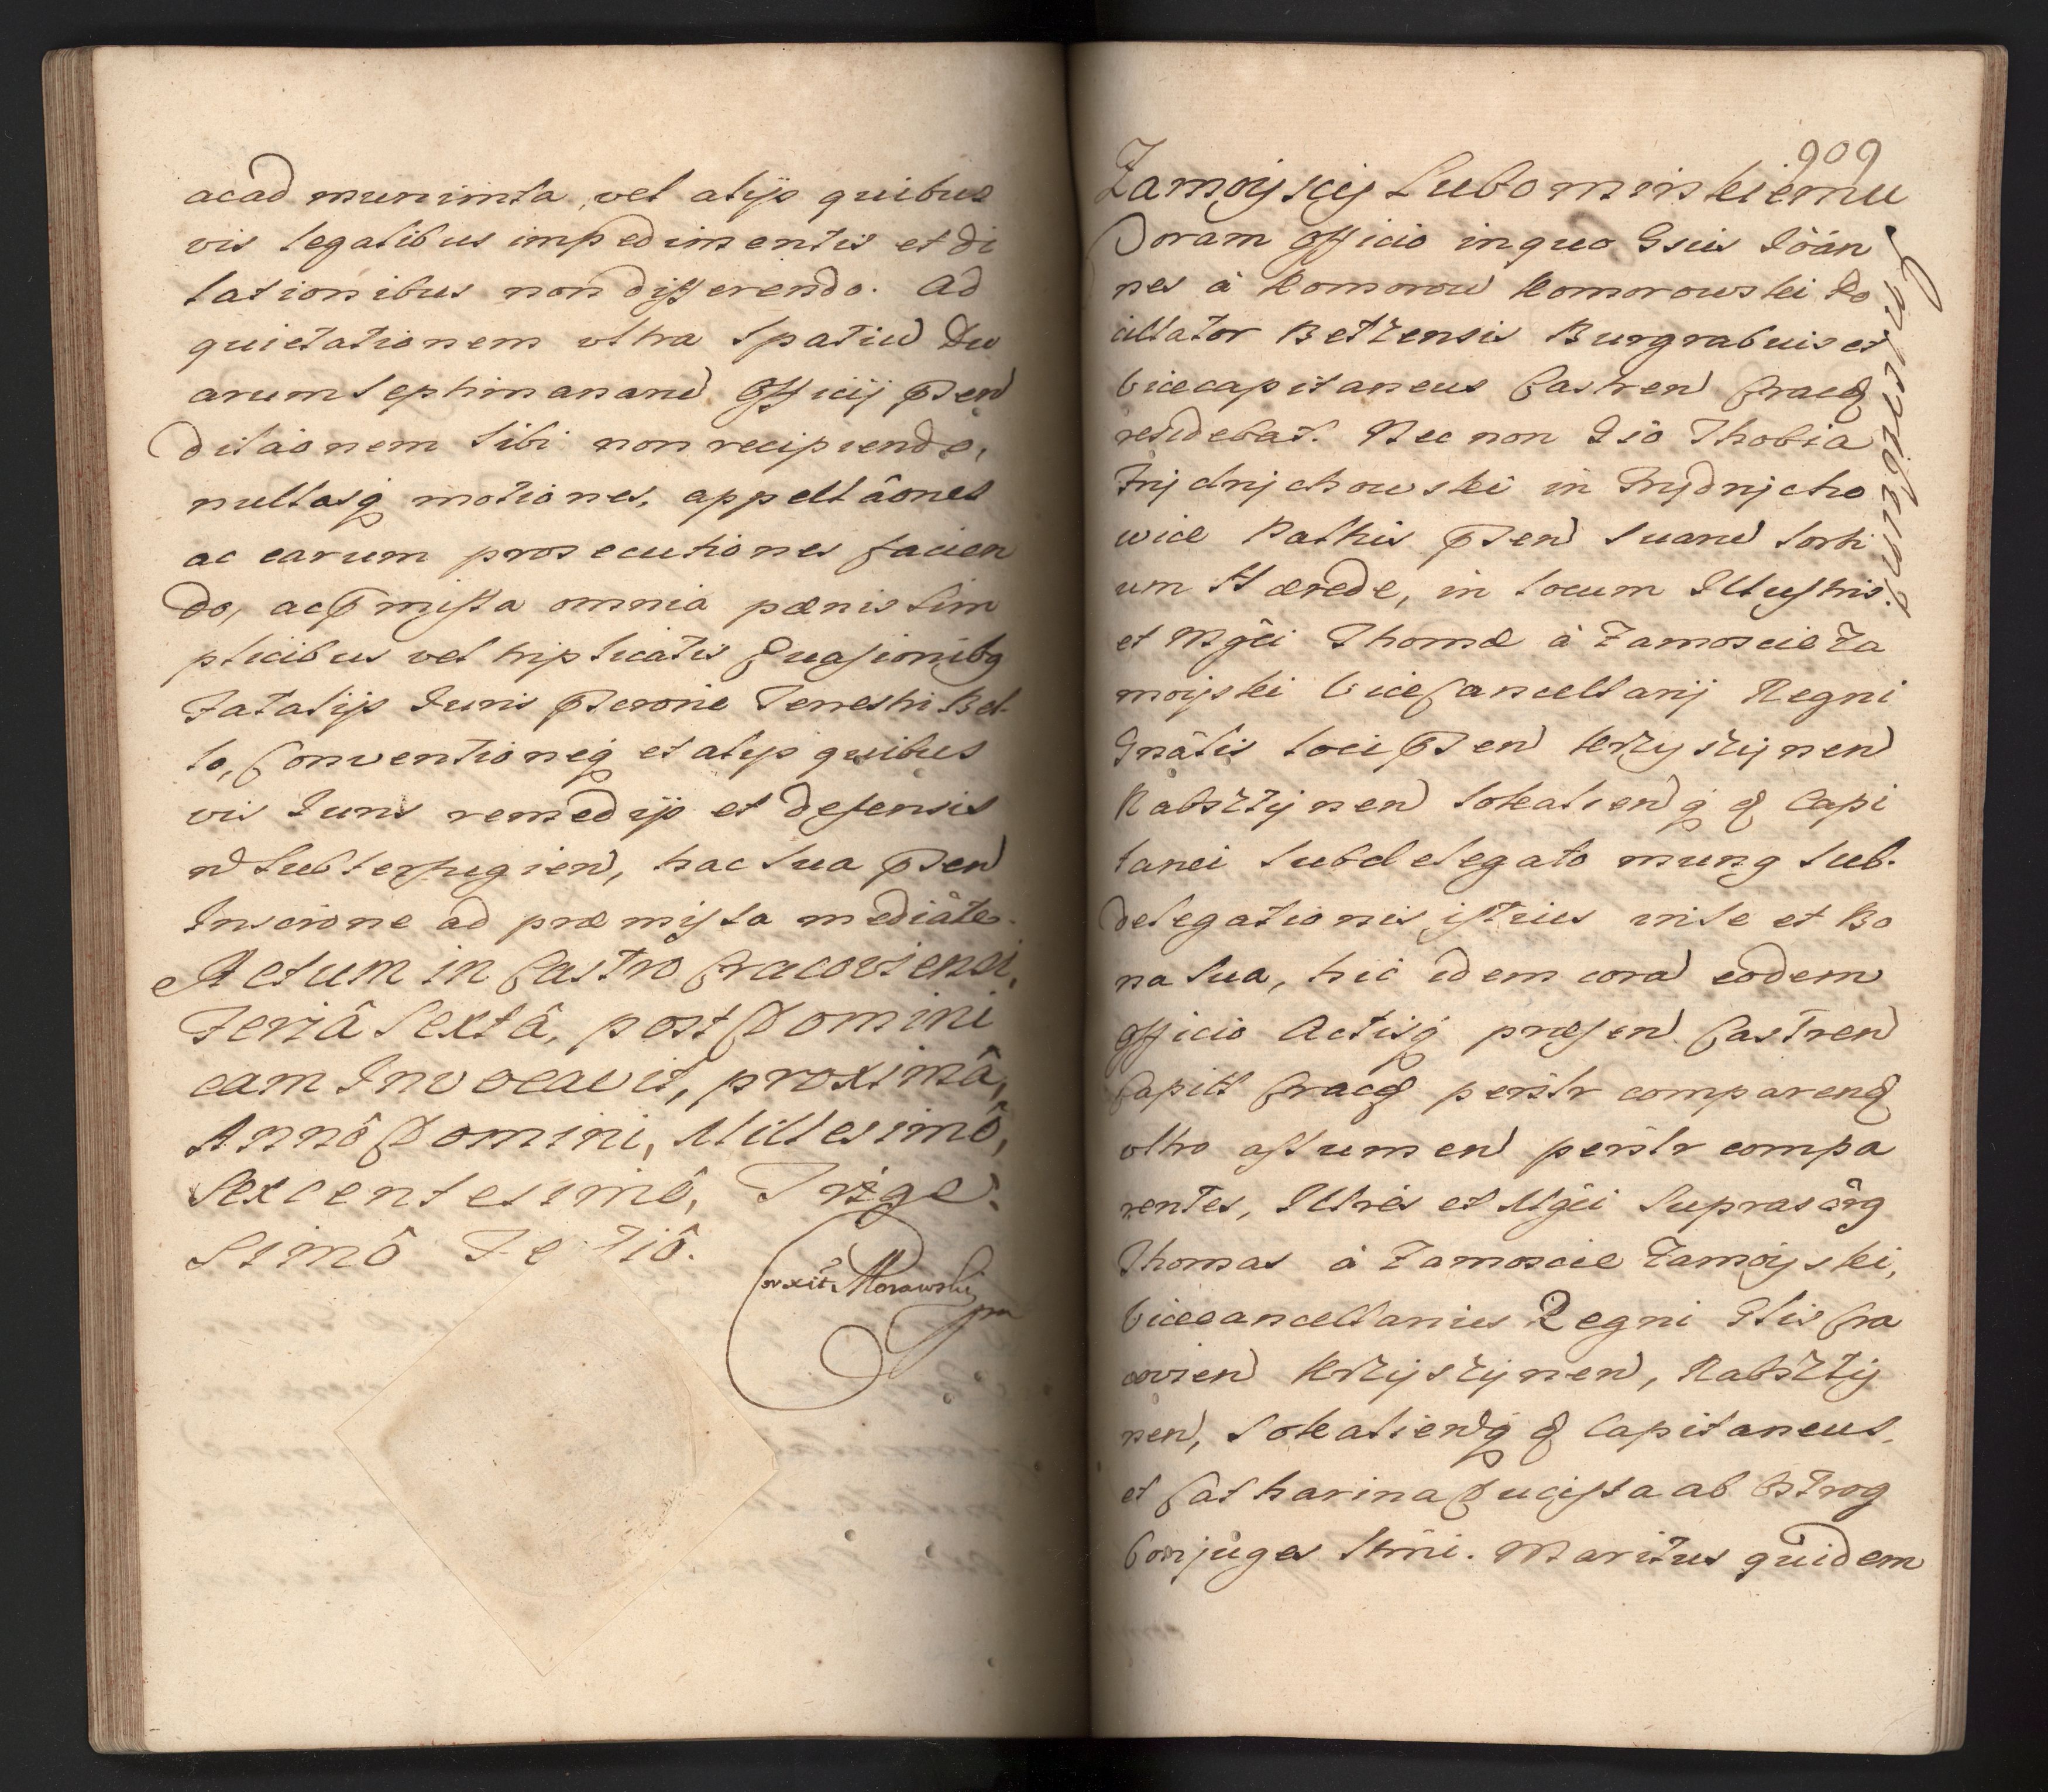 acad munimta, vel alijs quibus
vis legalibus impedimentis et di
lationibus non differendo. Ad
quietationem ultra spatiu Du
arum septimanaru Officij pñen
ditaonem sibi non recipiendo,
nullasq motiones, appellâones
ac earum prosecutiones facien
do, ac pmissa omnia pænis sim
plicibus vel triplicatis Evasionibq
Fatalijs Iuris Terrestri Bel
lo, Conventioneq et alijs quibus
vis Iuris remedijs et defensis
n subterfugien, hac sua pñen
Inscrione ad præmissa mediâte.
Actum in Castro Cracoviensi,
Feriâ Sextâ, post Domini
cam Invocavit, proximâ,
Annô Domini, Millesimô,
Sexcentesimô, Trige:
simô Tertiô.
Corxit Morawski
mp
909
Zamoyscy Lubomirskiemu
Coram officio in quo Gsus Ioan
nes à Komorow Komorowski Po
cillator Belzensis Burgrabius et
Vicecapitaneus Castren Crac
residebat. Nec non Gso Thobia
Frydrychowski in Frydrycho
wice Pathis pñen suaru sorti
um Hærede, in locum Illustris
et Mgci Thomæ à Zamoscie Za
moyski ViceCancellarij Regni
Gnâlis loci pñen Krzyszynen
Rabsztynen Sokalienq & Capi
tanei subdelegato munq sub.
delegationis istius rite et Bo
na sua, hic idem cora eodem
officio Actisq præsen Castren
Capitl Crac persltr comparen
ultro assumen persltr compa
rentes, Illres et Mgci suprascrq
Thomas à Zamoscie Zamoyski,
Vicecancellarius Regni Glis Cra
covien Krzyszynen, Rabszty
nen, Sokalienq & Capitaneus,
et Catharina Ducissa ab Ostrog
Conjuges ltmi. Maritus quidem